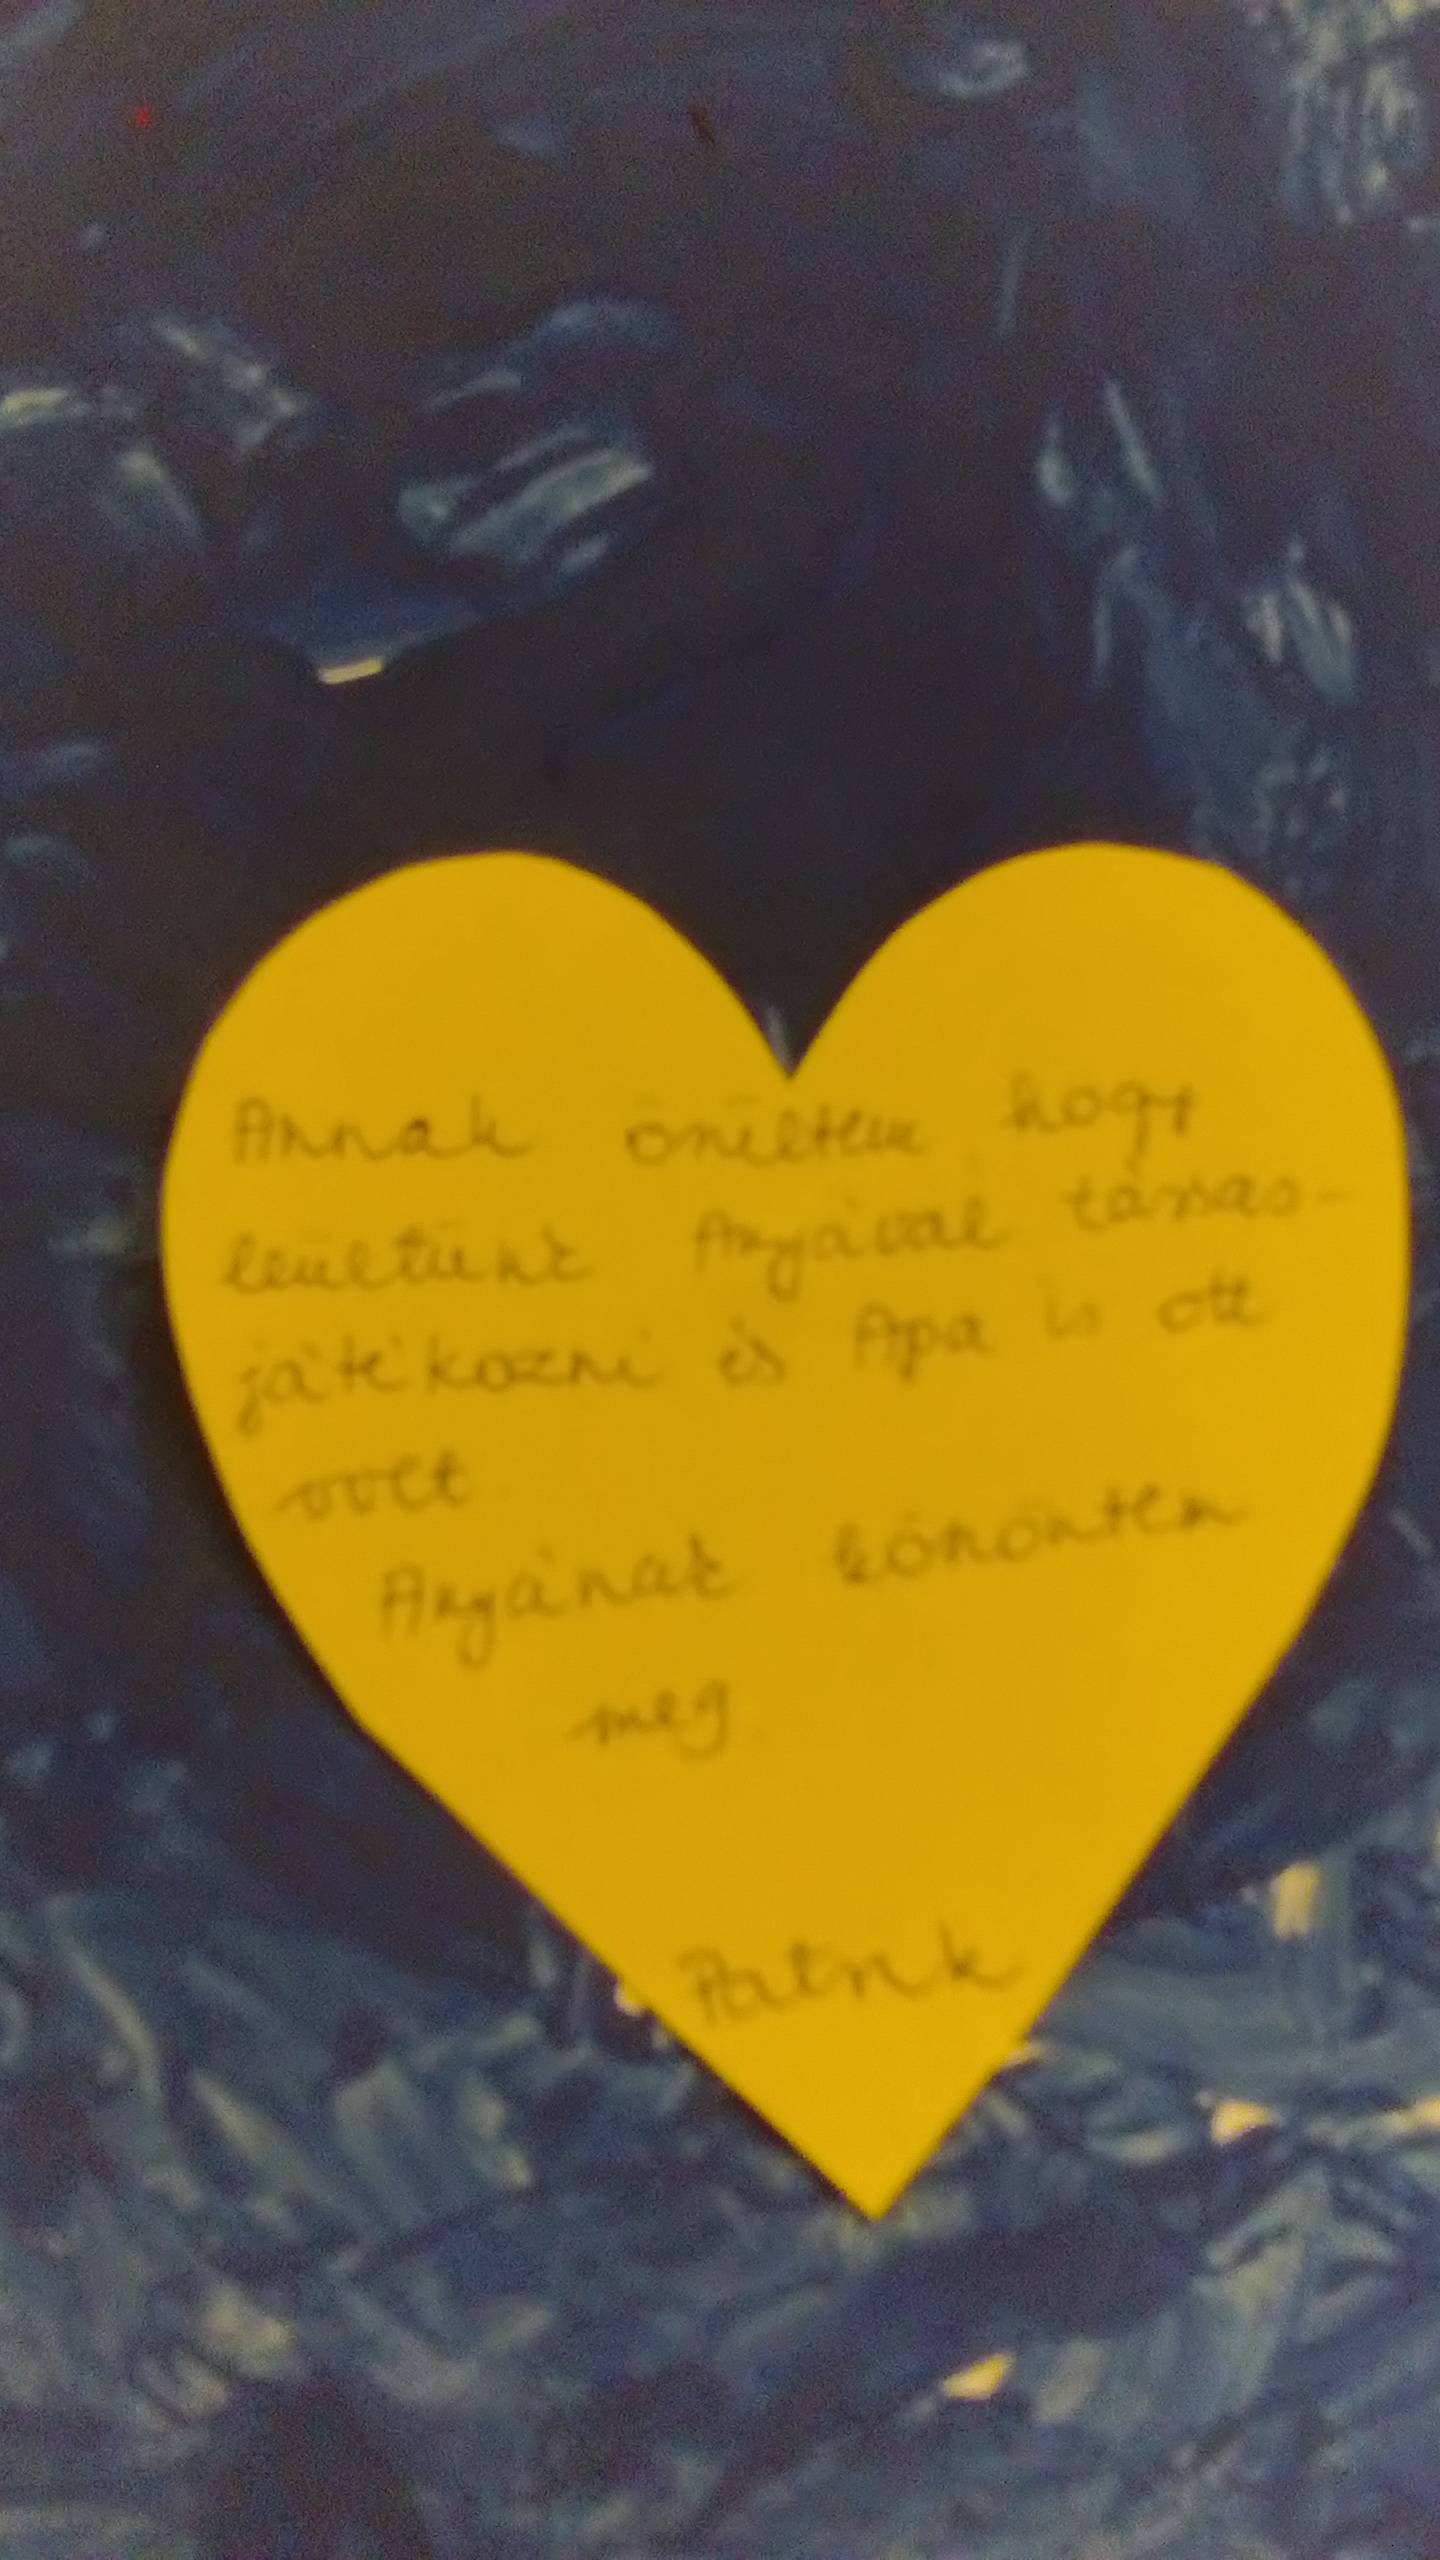 Annak örültem hogy
leültünk Anyával társas-
játékozni és Apa is ott
volt.
Anyának köszöntem
meg.
Patrik